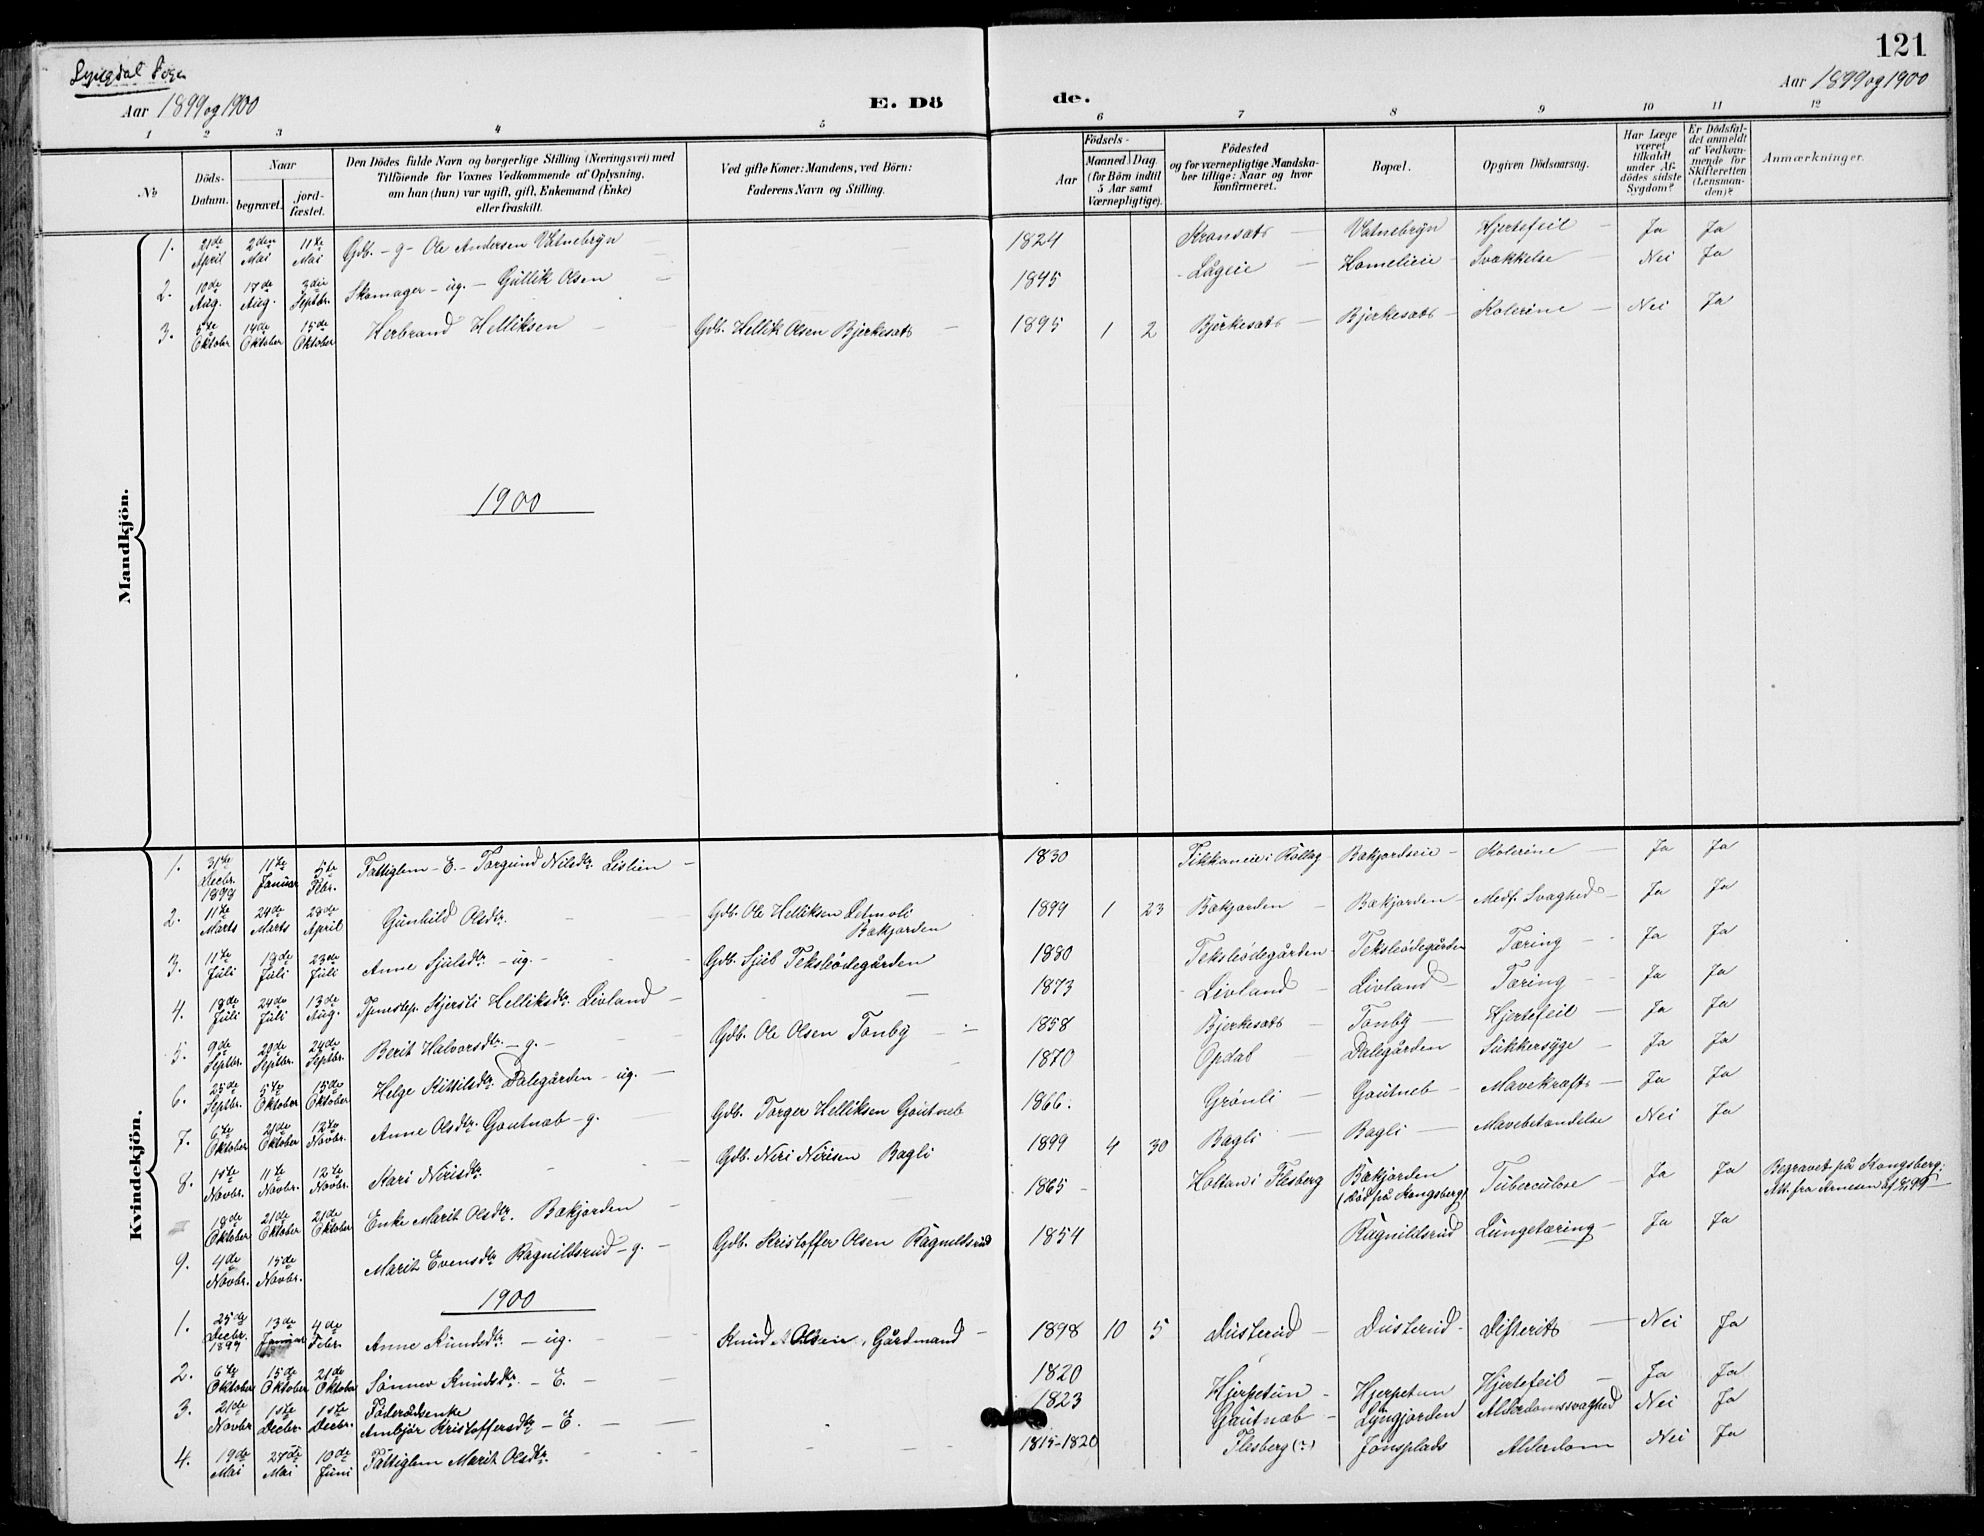 Lyngdal Sogn
Aar 1899 og 1900
E. Dö
de.
121
Aar 1899 og 1900
1 2 3 4 5 6 7 8 9 10 11 12
No
Döds-Datum.
Naar
begravet.
jord-fæstet.
Den Dödes fulde Navn og borgerlige Stilling (Næringsvei) med
Tilföiende for Voxnes Vedkommende af Oplysning.
om han (hun) var ugift, gift, Enkemand (Enke)
eller fraskilt.
Ved gifte Koner: Mandens, ved Börn:
Faderens Navn og Stilling.
Födsels-
Aar
Maaned Dag
(for Börn indtil
5 Aar samt
Værnepligtige).
Födested
og for værnepligtige Mandska-
ber tillige: Naar og hvor
konfirmeret.
Bopæl.
Opgiven Dödsaarsag.
Har Læge
været
tilkaldt
under Af-
dödes sidste
Sygdom?
Er Dödsfal-
det anmeldt
af Vedkom-
mende for
Skifteretten
(Lensman-
den)?
Anmærkninger.
Mandkjön.
1. 21de April 2den Mai 11te Mai Gdb. - g - Ole Andersen Vatnebryn 1824 Vatnebryn Hjertefeil Ja Ja
2. 10de Aug. 17de Aug. 3die Septbr. Skomager - ug. - Gullik Olsen 1845 Lågeie Homelieie Svækkelse Nei Ja
3. 5te Oktober 14de Oktober 15de Oktober Herbrand Helliksen Gdb. Hellik Olsen Bjerkesæts 1895 1 2 Bjerkesæts Bjerkesæts Kolerine Nei Ja
1900
Kvindekjön.
1. 31te Decbr. 1898 11te Januar 5te Febr. Fattiglem - E. - Torgund Nilsdtr. Lislien 1830 Fikkaneie i Rollag Bækjordseie Kolerine Ja Ja
2. 11te Marts 24de Marts 23de April Gunhild Olsdtr. Gdb. Ole Helliksen Bækjorden 1899 1 23 Bækjorden Bækjorden Medf. Svaghed Ja Ja
3. 11te Juli 19de Juli 23de Juli Anne Sjulsdtr. - ug. - Gdb. Sjul Teksleødegården 1880 Tekslødegården Tekslødegården Tæring Ja Ja
4. 18de Juli 24de Juli 13de Aug. Tjenestep. Kjersti Helliksdtr. Livland 1873 Livland Livland Tæring Ja Ja
5. 9de Septbr. 20de Septbr. 24de Septbr. Berit Halvorsdtr. - g. - Gdb. Ole Olsen Tonby 1858 Bjerkesæts Tonby Hjertefeil Ja Ja
6. 25de Septbr. 5te Oktober 15de Oktober Helge Kittilsdtr. Dalegården - ug. 1870 Opdal Dalegården Sukkersyge Ja Ja
7. 6te Oktober 21de Oktober 12te Novbr. Anne Olsdtr. Goutnæb - g. Gdb. Torger Helliksen Goutneb 1866. Grönli Goutneb Mavekræft Ja Ja
8. 1ste Novbr. 11te Novbr. 12te Novbr. Mari Nirisdtr. Gdb. Niri Nirisen Bagli 1899 4 30 Bagli Bagli Mavebetændelse Nei Ja
= 18de Oktober 21de Oktober 21de Oktober Enke Marit Olsdtr. Bækjorden 1865 Holtan i Flesberg Bækjorden (död på Kongsberg) Tuberculose Ja Ja Begravet på Kongsberg. Att. fra Arnesen af
9. 4de Novbr. 15de Novbr. Marit Evensdtr. Ragnildsrud - g. - Gdb. Kristoffer Olsen Ragnildsrud 1854 Ragnildsrud Lungetæring Ja Ja
1900
1. 25de Decbr. 1899 13de Januar 4de Febr. Anne Knudsdtr. - ug. Knud Olsen, Gårdmand 1898 10 5 Dusterud Dusterud Difterit Nei Ja
2. 6te Oktober 15de Oktober 21de Oktober Sønnev Knudsdtr. - E. - 1820 Hjerpetun Hjerpetun Hjertefeil Ja Ja
3. 21de Novbr. 1ste Decbr. 1ste Decbr. Föderådsenke Ambjör Kristoffersdtr - E. 1823 Goutnæb Lyngjorden Alderdomssvaghed Nei Ja
4. 19de Mai 27de Mai 10de Juni Fattiglem Marit Olsdtr. 1815-1820 Flesberg (?) Jonsplads Alderdom Nei Ja